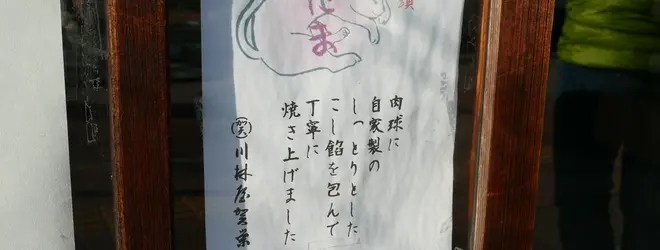 たま
肉球に
自家製の
しっとりとした
こし餡を包んで
丁寧に
焼き上げました
川林屋賀栄